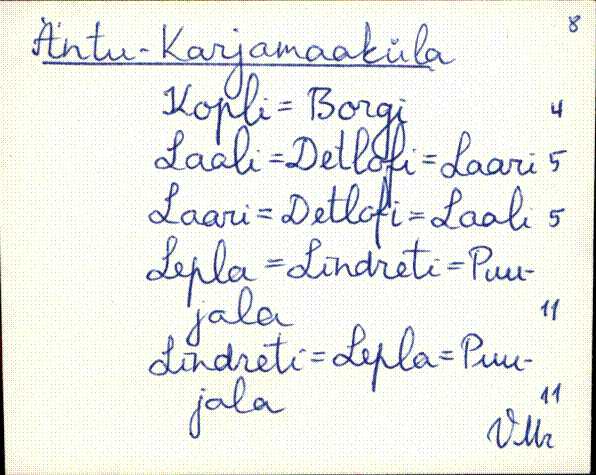 8
Äntu-Karjamaaküla
Kopli = Borgi 4
Laali = Detlofi = Laari 5
Laari = Detlofi = Laali 5
Lepla = Lindreti = Puu-
jala 11
Lindreti = Lepla = Puu-
jala 11
VMr